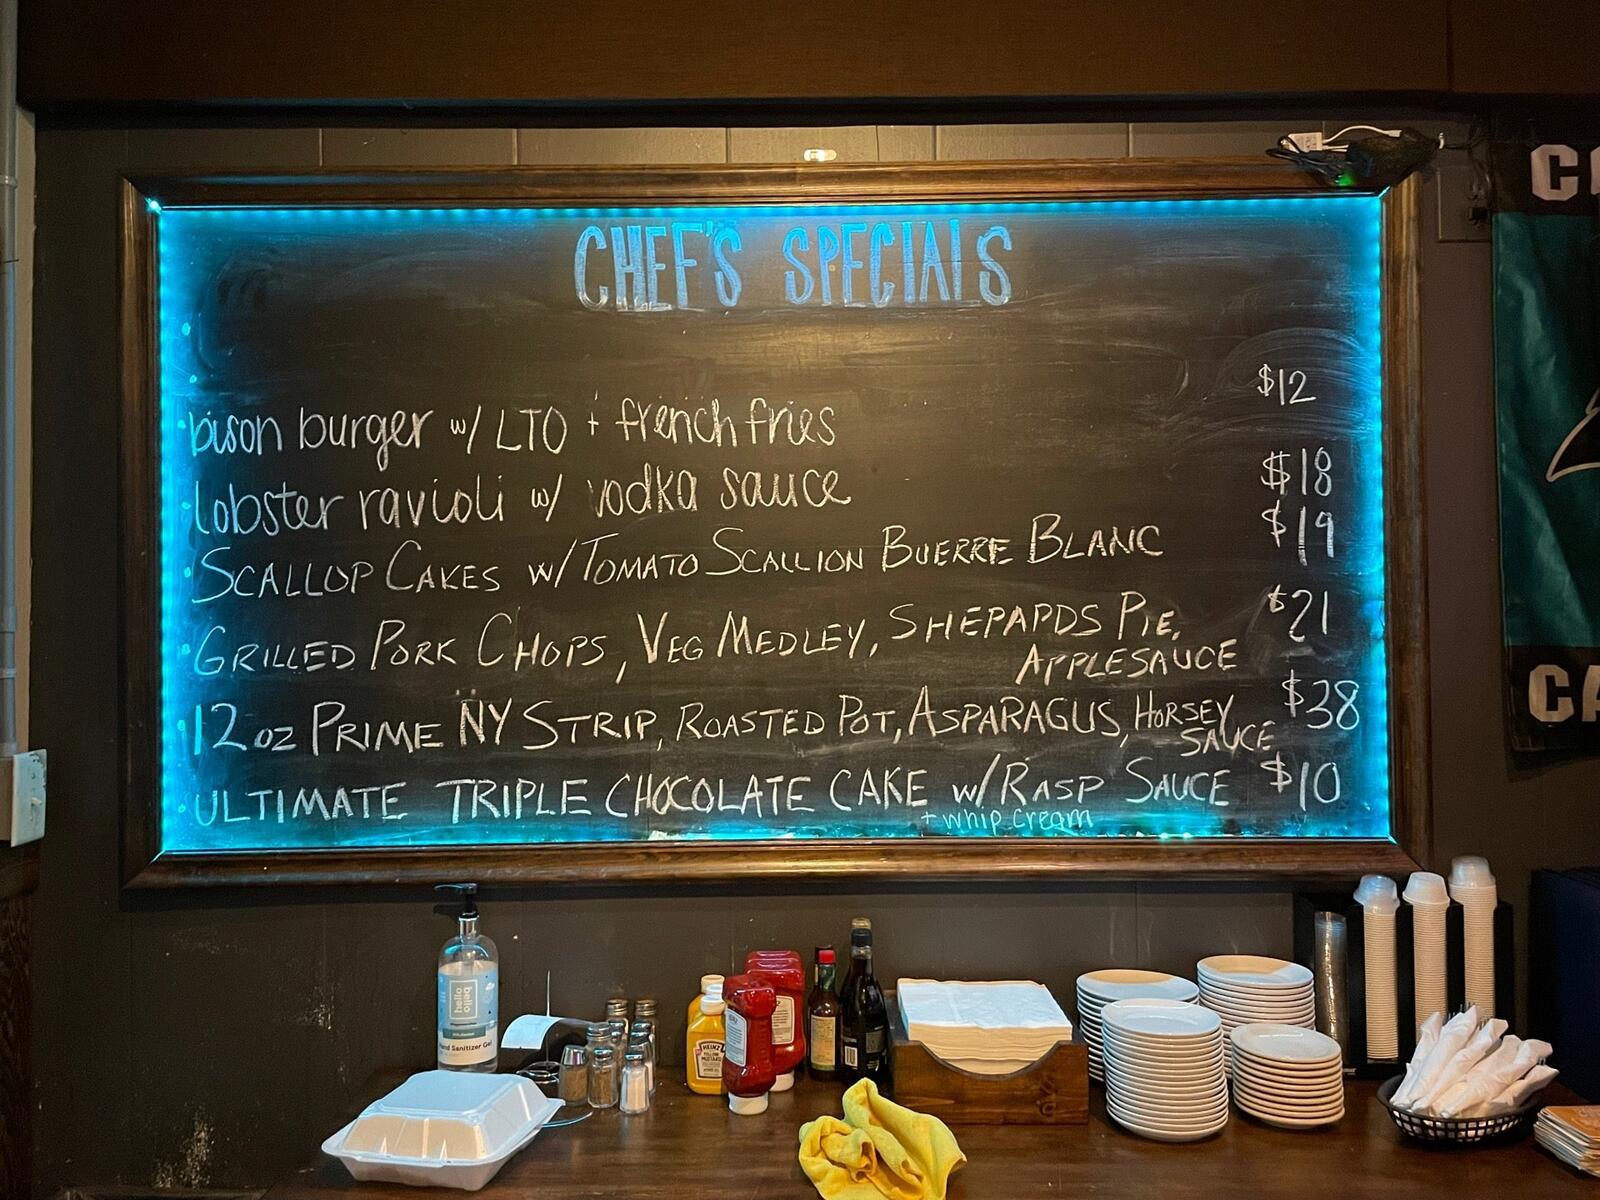 CHEF'S SPECIALS
bison burger w/ LTO + french fries $12
lobster ravioli w/ vodka sauce $18
SCALLOP CAKES w/ TOMATO SCALLION BUERRE BLANC $19
GRILLED PORK CHOPS, VEG MEDLEY, SHEPARDS PIE, $21
APPLESAUCE
12oz PRIME NY STRIP, ROASTED POT, ASPARAGUS, HORSEY $38
SAUCE
ULTIMATE TRIPLE CHOCOLATE CAKE w/ RASP SAUCE $10
+ whip cream
CO
CA
hello
hello
Hand Sanitizer Gel
HEINZ
YELLOW
MUSTARD